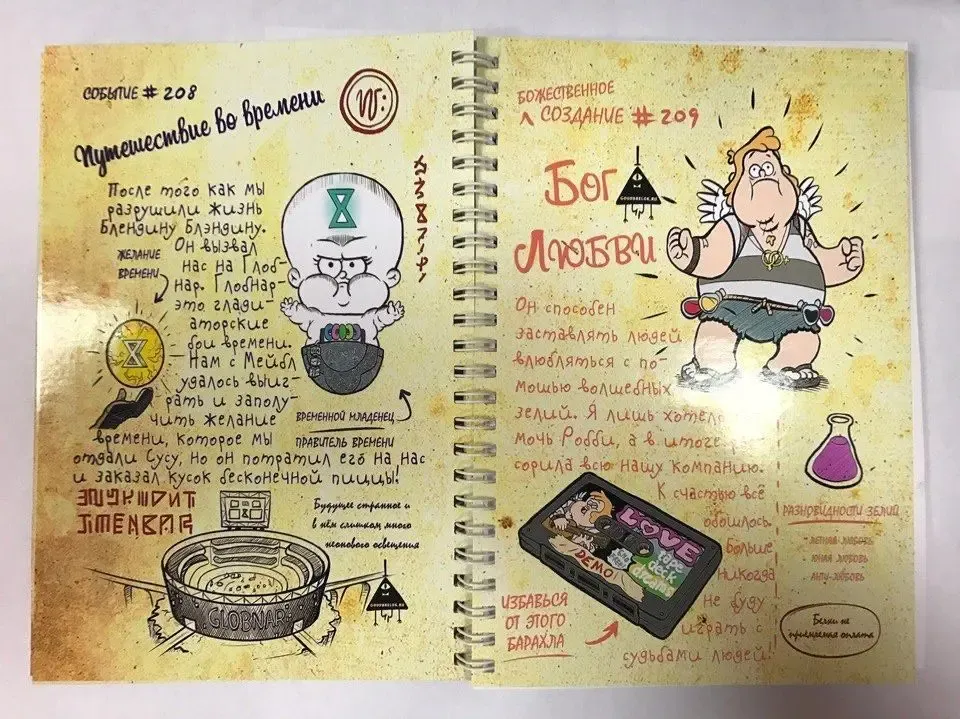 СОБЫТИЕ # 208
Путешествие во времени
После того как мы
разрушили жизнь
Блендину Блэндину.
Он вызвал
нас на Глоб-
нар. Глобнар-
это глади-
аторские
бои времени.
Нам с Мейбл
удалось выиг-
рать и заполу-
чить желание
времени, которое мы
отдали Сусу, но он потратил его на нас
и заказал кусок бесконечной пиццы!
ЖЕЛАНИЕ
ВРЕМЕНИ
ВРЕМЕННОЙ МЛАДЕНЕЦ
ПРАВИТЕЛЬ ВРЕМЕНИ
Будущее странное и
в нём слишком много
неонового освещения
GLOBNAR
GOODBRELOK.RU
БОЖЕСТВЕННОЕ
СОЗДАНИЕ # 209
Бог
Любви
GOODBRELOK.RU
Он способен
заставлять людей
влюбляться с по-
мощью волшебных
зелий. Я лишь хотела
мочь Робби, а в итоге
сорила всю нашу компанию.
К счастью всё
обошлось.
Больше
никогда
не буду
играть с
судьбами людей!
LOVE
tape
deck
dreams
DEMO
ИЗБАВЬСЯ
ОТ ЭТОГО
БАРАХЛА
РАЗНОВИДНОСТИ ЗЕЛИЙ
- ЛЕТНЯЯ ЛЮБОВЬ
- ЮНАЯ ЛЮБОВЬ
- АНТИ-ЛЮБОВЬ
Белки не
приемлемая оплата